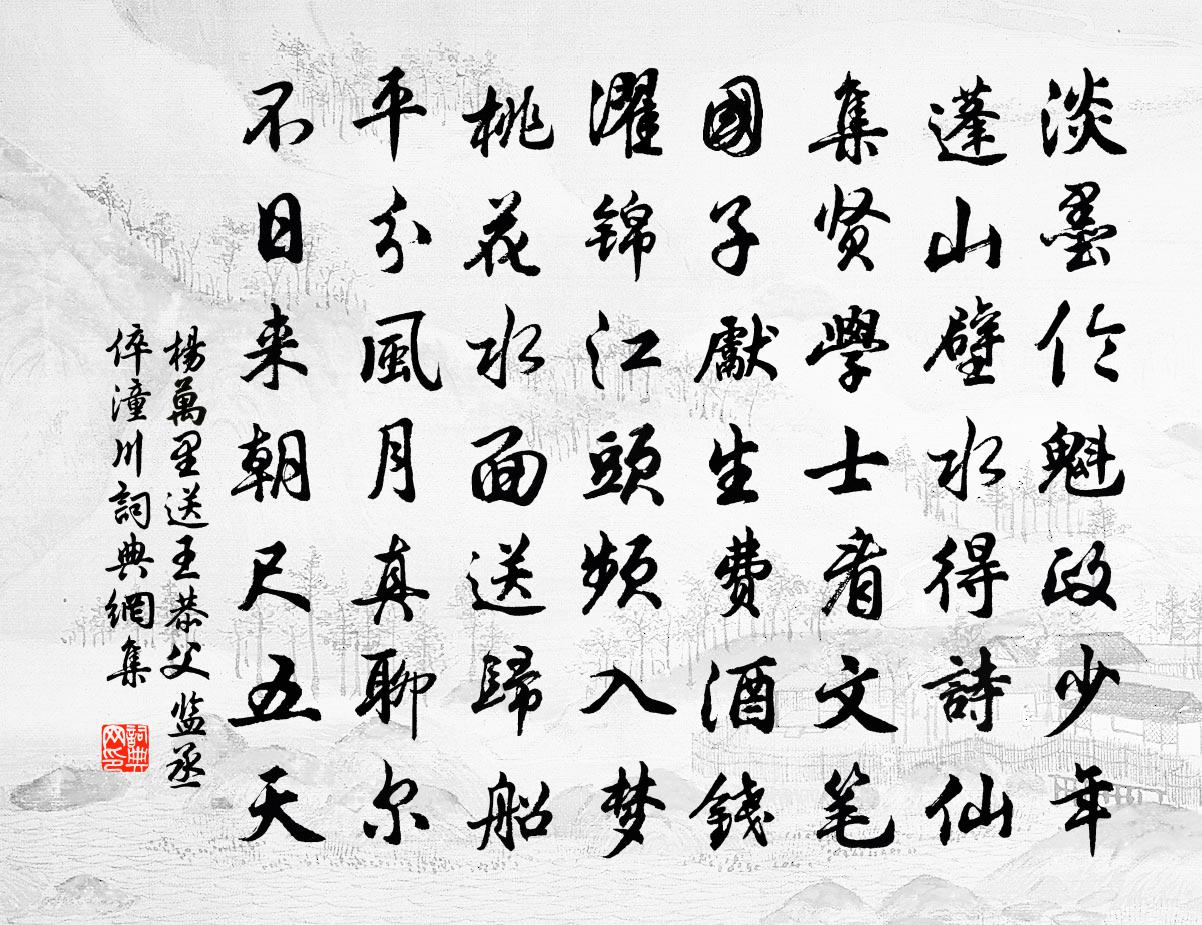 淡墨伦魁政少年
蓬山壁水得詩仙
集贤學士看文笔
國子獻生費酒錢
濯锦江頭频入梦
桃花水面送歸船
平分風月真聊尔
不日来朝尺五天
楊萬里送王恭父监丞
倅潼川詞典網集
詞典网印